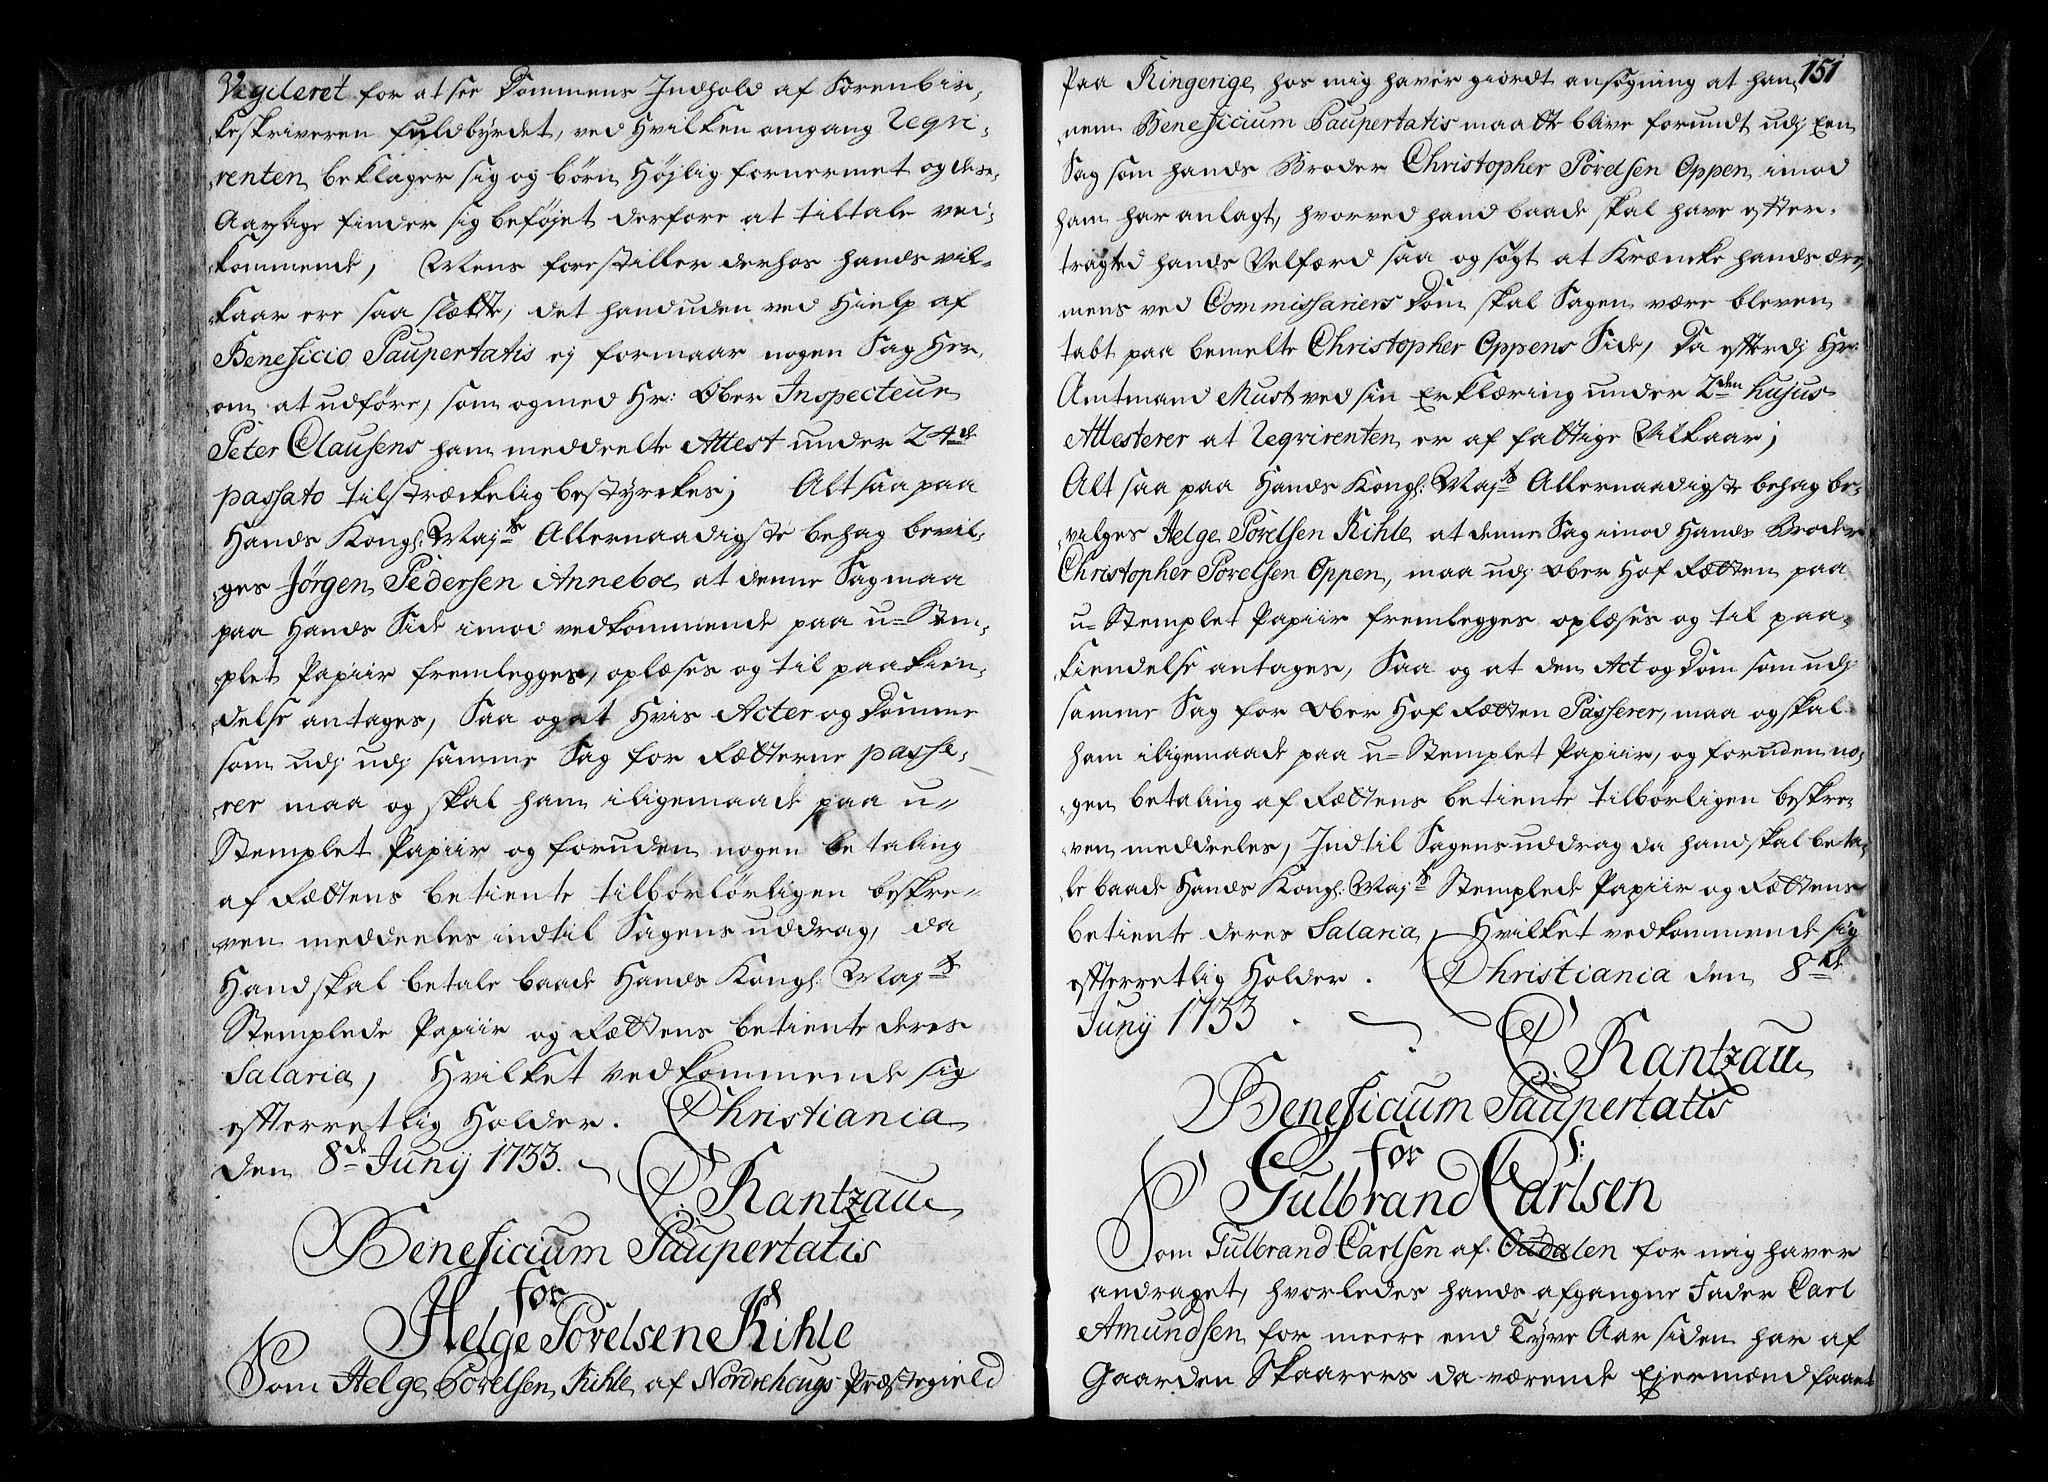 Vigileret for at see Dommens Indhold af Sorenbir-
keskriveren fuldbyrdet, ved hvilken omgang Reqvi-
renten beklager sig og børn høylig fornermet og dese-
Aarsage finder sig beføjet derfore at tiltale ved-
kommende, Mens forestiller derhos hands vil-
kaar ere saa slætte, det hand uden ved Hielp af
Beneficio Paupertatis ej formaar nogen Sag her-
om at udføre, som og med Hr: Ober Inspecteur
Peter Clausens ham meddeelte Attest under 24de
passato tilstræckelig bestyrckes; Alt saa paa
Hands Kongl: Mayts Allernaadigste behag bevil-
ges Jørgen Pedersen Anneboe at denne Sag maa
paa Hands Side imod vedkommende paa u-Stem-
plet Papiir fremlegges, oplæses og til paakien-
delse antages, Saa og at Hvis Acter og Domme
som udj udj samme Sag for Rætterne passe-
rer maa og skal ham iligemaade paa u-
Stemplet Papiir og foruden nogen betaling
af Rættens betiente tilbørlørligen beskre-
ven meddeeles indtil Sagens uddrag, da
Hand skal betale baade Hands Kongl: Mayts
Stemplede Papiir og Rættens betiente deres
Salaria, Hvilket vedkommende sig
efterretlig Holder. Christiania
den 8de Junij 1733.
C Rantzau
Beneficium Paupertatis
for
Helge Porelsen Kihle
Som Helge Porelsen Kihle af Nordrehougs Præstegield
151
Paa Ringerige hos mig haver giørdt ansøgning at han-
nem Beneficium Paupertatis maatte blive forundt udj Een
Sag som hands Broder Christopher Porelsen Oppen imod
ham har anlagt, hvorved hand baade skal have efter-
tragted hands Velfærd saa og søgt at Kræncke hands ære,
mens ved Commissariers Dom skal Sagen være bleven
tabt paa bemelte Christopher Oppens Side, Da efterdj Hr:
Amtmand Must ved sin Erklæring under 2den hujus
Attesterer at Reqvirenten er af fattige Vilkaar;
Alt saa paa Hands Kongl: Mayts Allernaadigste behag be-
vilges Helge Porelsen Kihle at denne Sag imod Hands Broder
Christopher Porelsen Oppen, maa udj Ober Hof Rætten paa
u-Stemplet Papiir fremlegges oplæses og til paa-
kiendelse antages, Saa og at den Act og Dom som udj
samme Sag for Ober Hof Rætten Passerer, maa og skal
ham iligemaade paa u-Stemplet Papiir, og foruden no-
gen betaling af Rættens betiente tilbørligen beskre-
ven meddeeles, Indtil Sagens uddrag da hand skal beta-
le baade Hands Kongl: Mayts Stemplede Papiir og Rættens
betiente deres Salaria, Hvilket vedkommende sig
efterretlig Holder. Christiania den 8de
Junij 1733.
C Rantzau
Beneficium Paupertatis
for
Gulbrand Carlsen
Som Gulbrand Carlsen af Oudalen for mig haver
andraget, hvorledes hands afgangne Fader Carl
Amundsen for meere end Tyve Aar siden har af
Gaarden Skaarers da værende Ejermænd faaet